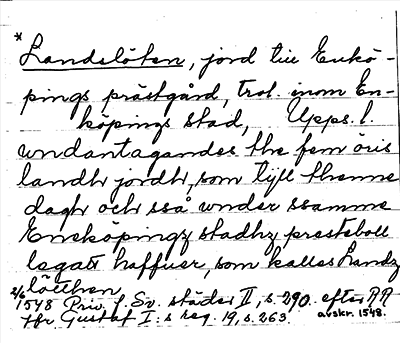 * Landslöten, jord till Enkö-
pings prästgård, trol. inom En-
köpings stad, Upps. l.
undantagandes the fem öris
landh jordh, som tyll thenne
dagh och sså under ssamme
Enekopingz stadhz presteboll
legatt haffuer, som kalles Landz
lötthen
2/6 1548 Priv. f. Sv. städer II, s. 290. efter RR
Jfr Gustaf I:s reg. 19, s. 263. avskr. 1548.